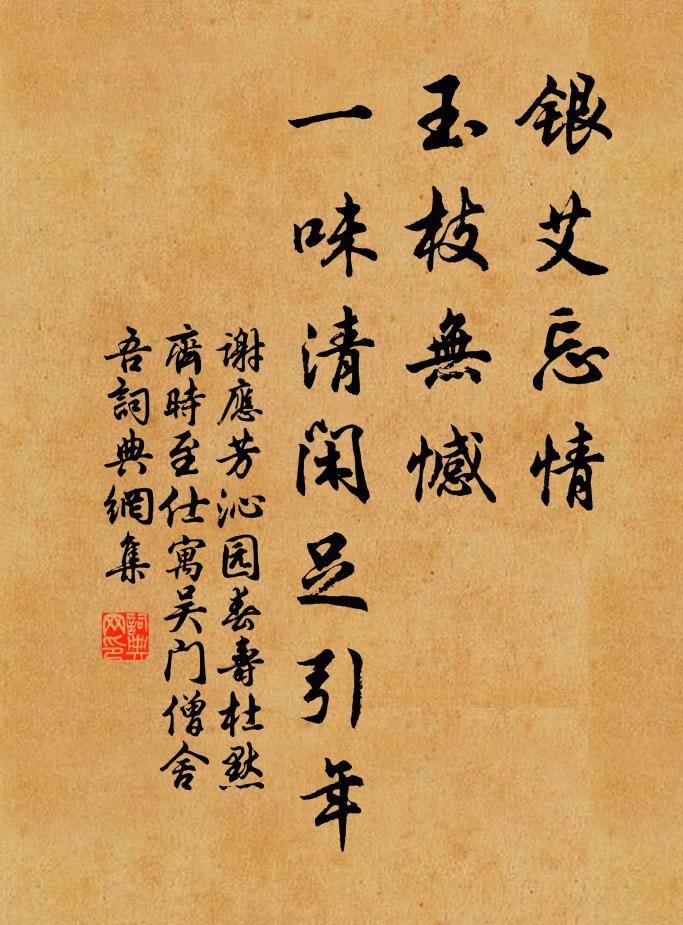 銀艾忘情
玉枝無憾
一味清閑足引年
謝應芳沁园春壽杜默
齋時至仕寓吴门僧舍
吾詞典網集
詞典
网印